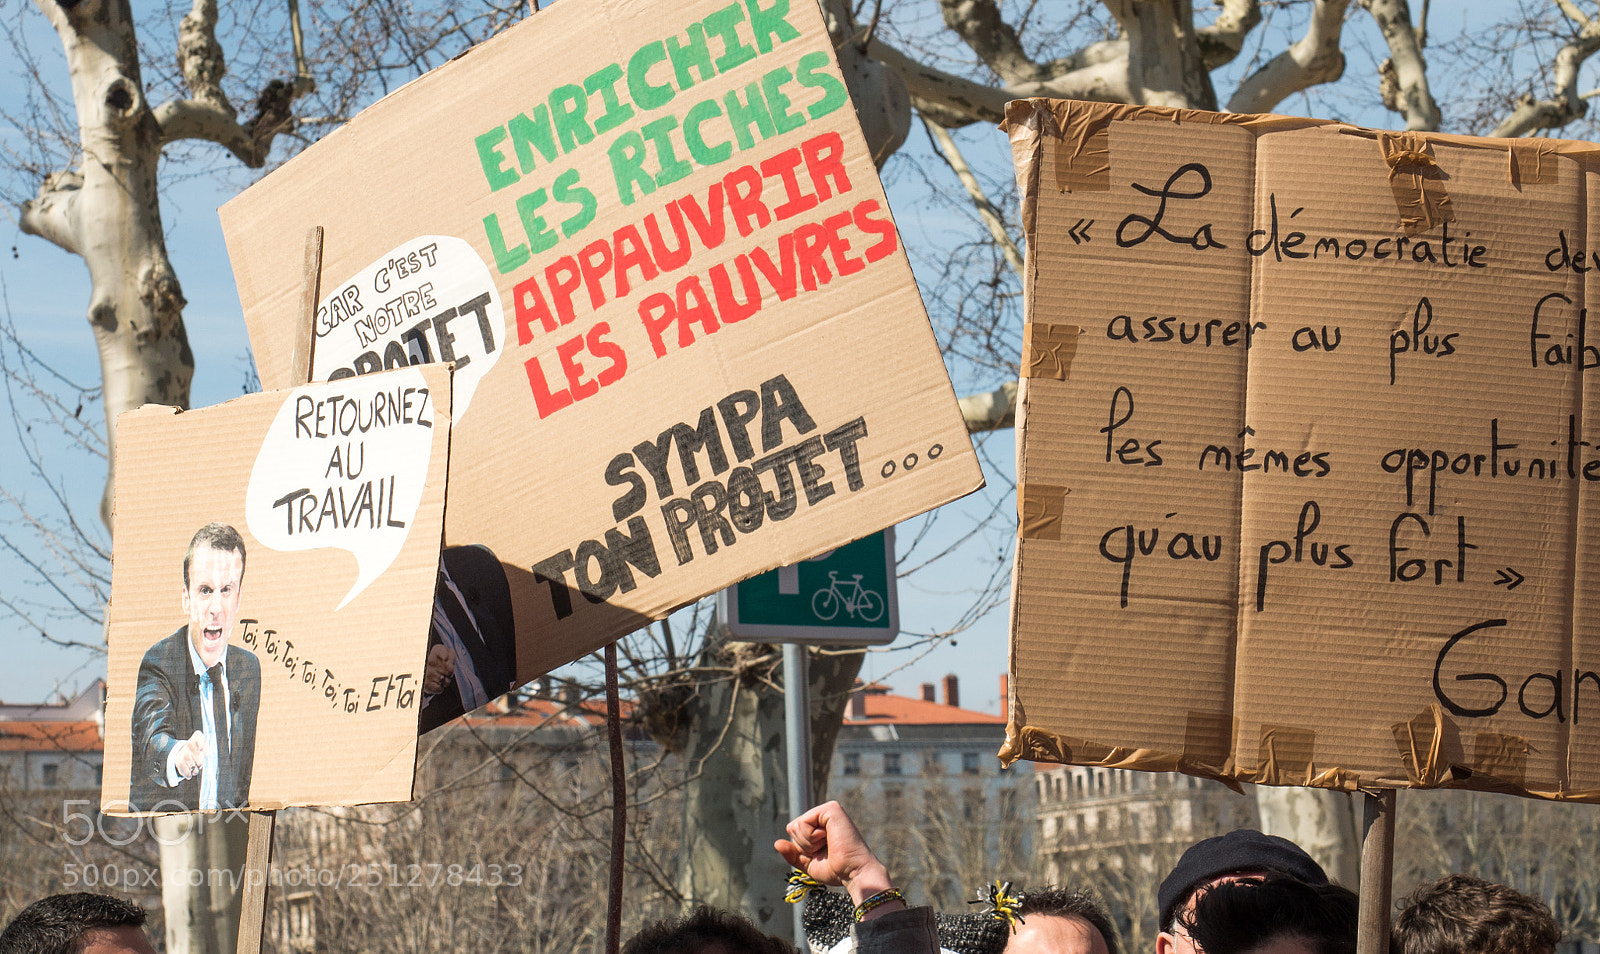 ENRICHIR
LES RICHES
APPAUVRIR
LES PAUVRES
CAR C'EST
NOTRE
PROJET
SYMPA
TON PROJET...
RETOURNEZ
AU
TRAVAIL
Toi, Toi, Toi, Toi, Toi, Toi ET Toi
« La démocratie dev
assurer au plus faib
les mêmes opportunité
qu'au plus fort »
Gan
P
500px
500px.com/photo/251278433